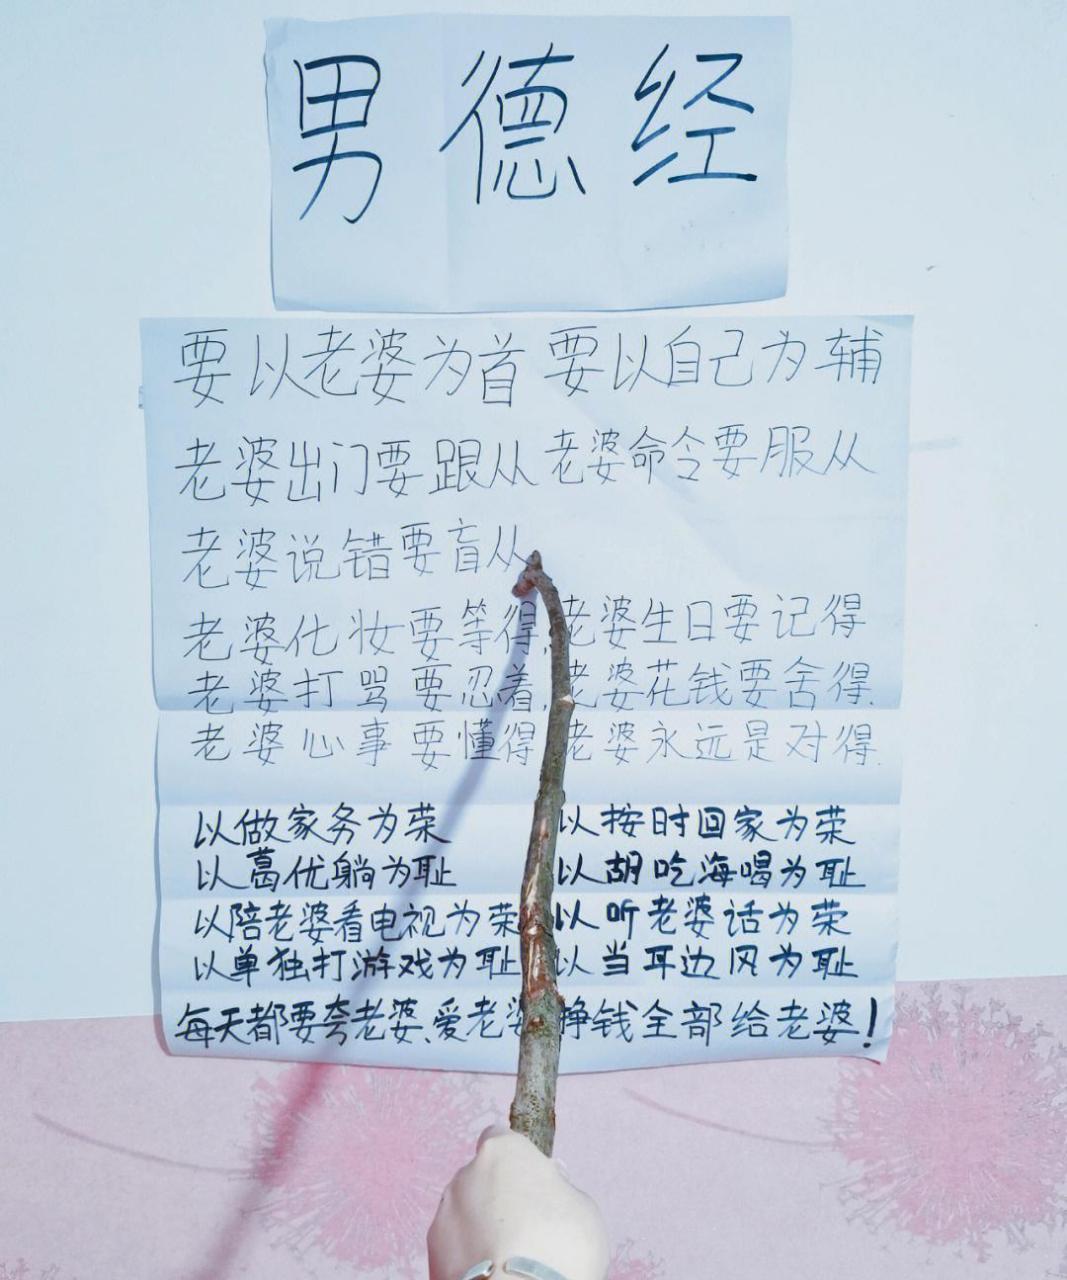 男德经
要以老婆为首 要以自己为辅
老婆出门要跟从 老婆命令要服从
老婆说错要盲从
老婆化妆要等得,老婆生日要记得
老婆打骂要忍着,老婆花钱要舍得.
老婆心事要懂得 老婆永远是对得.
以做家务为荣 以按时回家为荣
以葛优躺为耻 以胡吃海喝为耻
以陪老婆看电视为荣 以听老婆话为荣
以单独打游戏为耻 以当耳边风为耻
每天都要夸老婆、爱老婆 挣钱全部给老婆!